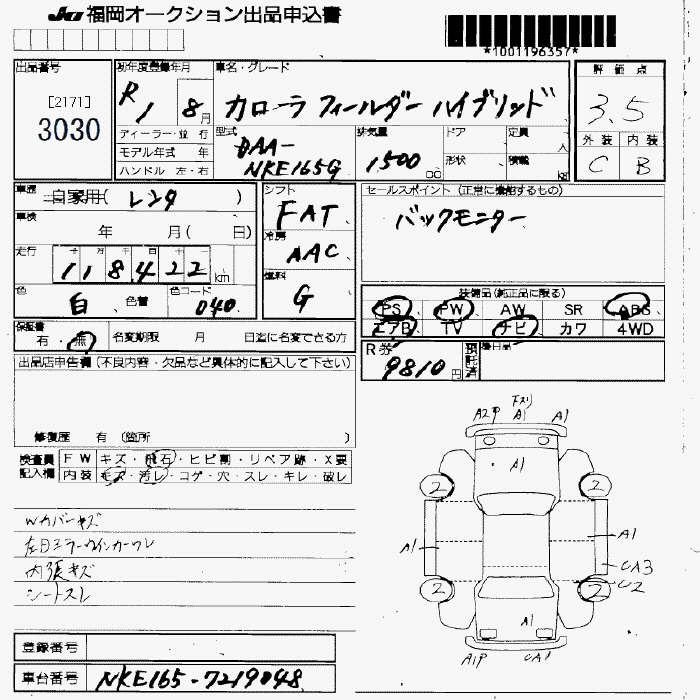 JU 福岡オークション出品申込書
*1001196357*
出品番号
[2171]
3030
初年度登録年月
R1 8月
ディーラー・並行
モデル年式 年
ハンドル 左・右
車名・グレード
カローラフィールダーハイブリッド
型式
DAA-
NKE165G
排気量
1500 cc
ドア
形状
定員 人
積載 kg
評価点
3.5
外装 内装
C B
車歴 自家用( レンタ )
車検 年 月( 日)
走行 十 万 千 百 十 一
118422 km
色 白 色替 色コード 040
シフト
FAT
冷房
AAC
燃料
G
セールスポイント (正常に機能するもの)
バックモニター
装備品(純正品に限る)
PS PW AW SR ABS
エアB TV ナビ カワ 4WD
保証書 有・無 名変期限 月 日迄に名変できる方
R券 9810円 預託済 後日品
出品店申告欄(不良内容・欠品など具体的に記入して下さい)
修復歴 有 (箇所 )
検査員記入欄
FW キズ・飛石・ヒビ割・リペア跡・X要
内装 キズ・汚レ・コゲ・穴・スレ・キレ・破レ
Wカバーキズ
左ドミラーウインカーワレ
内張キズ
シートスレ
Fスリ
A2P A1 A1
A1
2 2
A1 A1
UA3
U2
2 2
A1
A1P UA1
登録番号
車台番号 NKE165-7219048